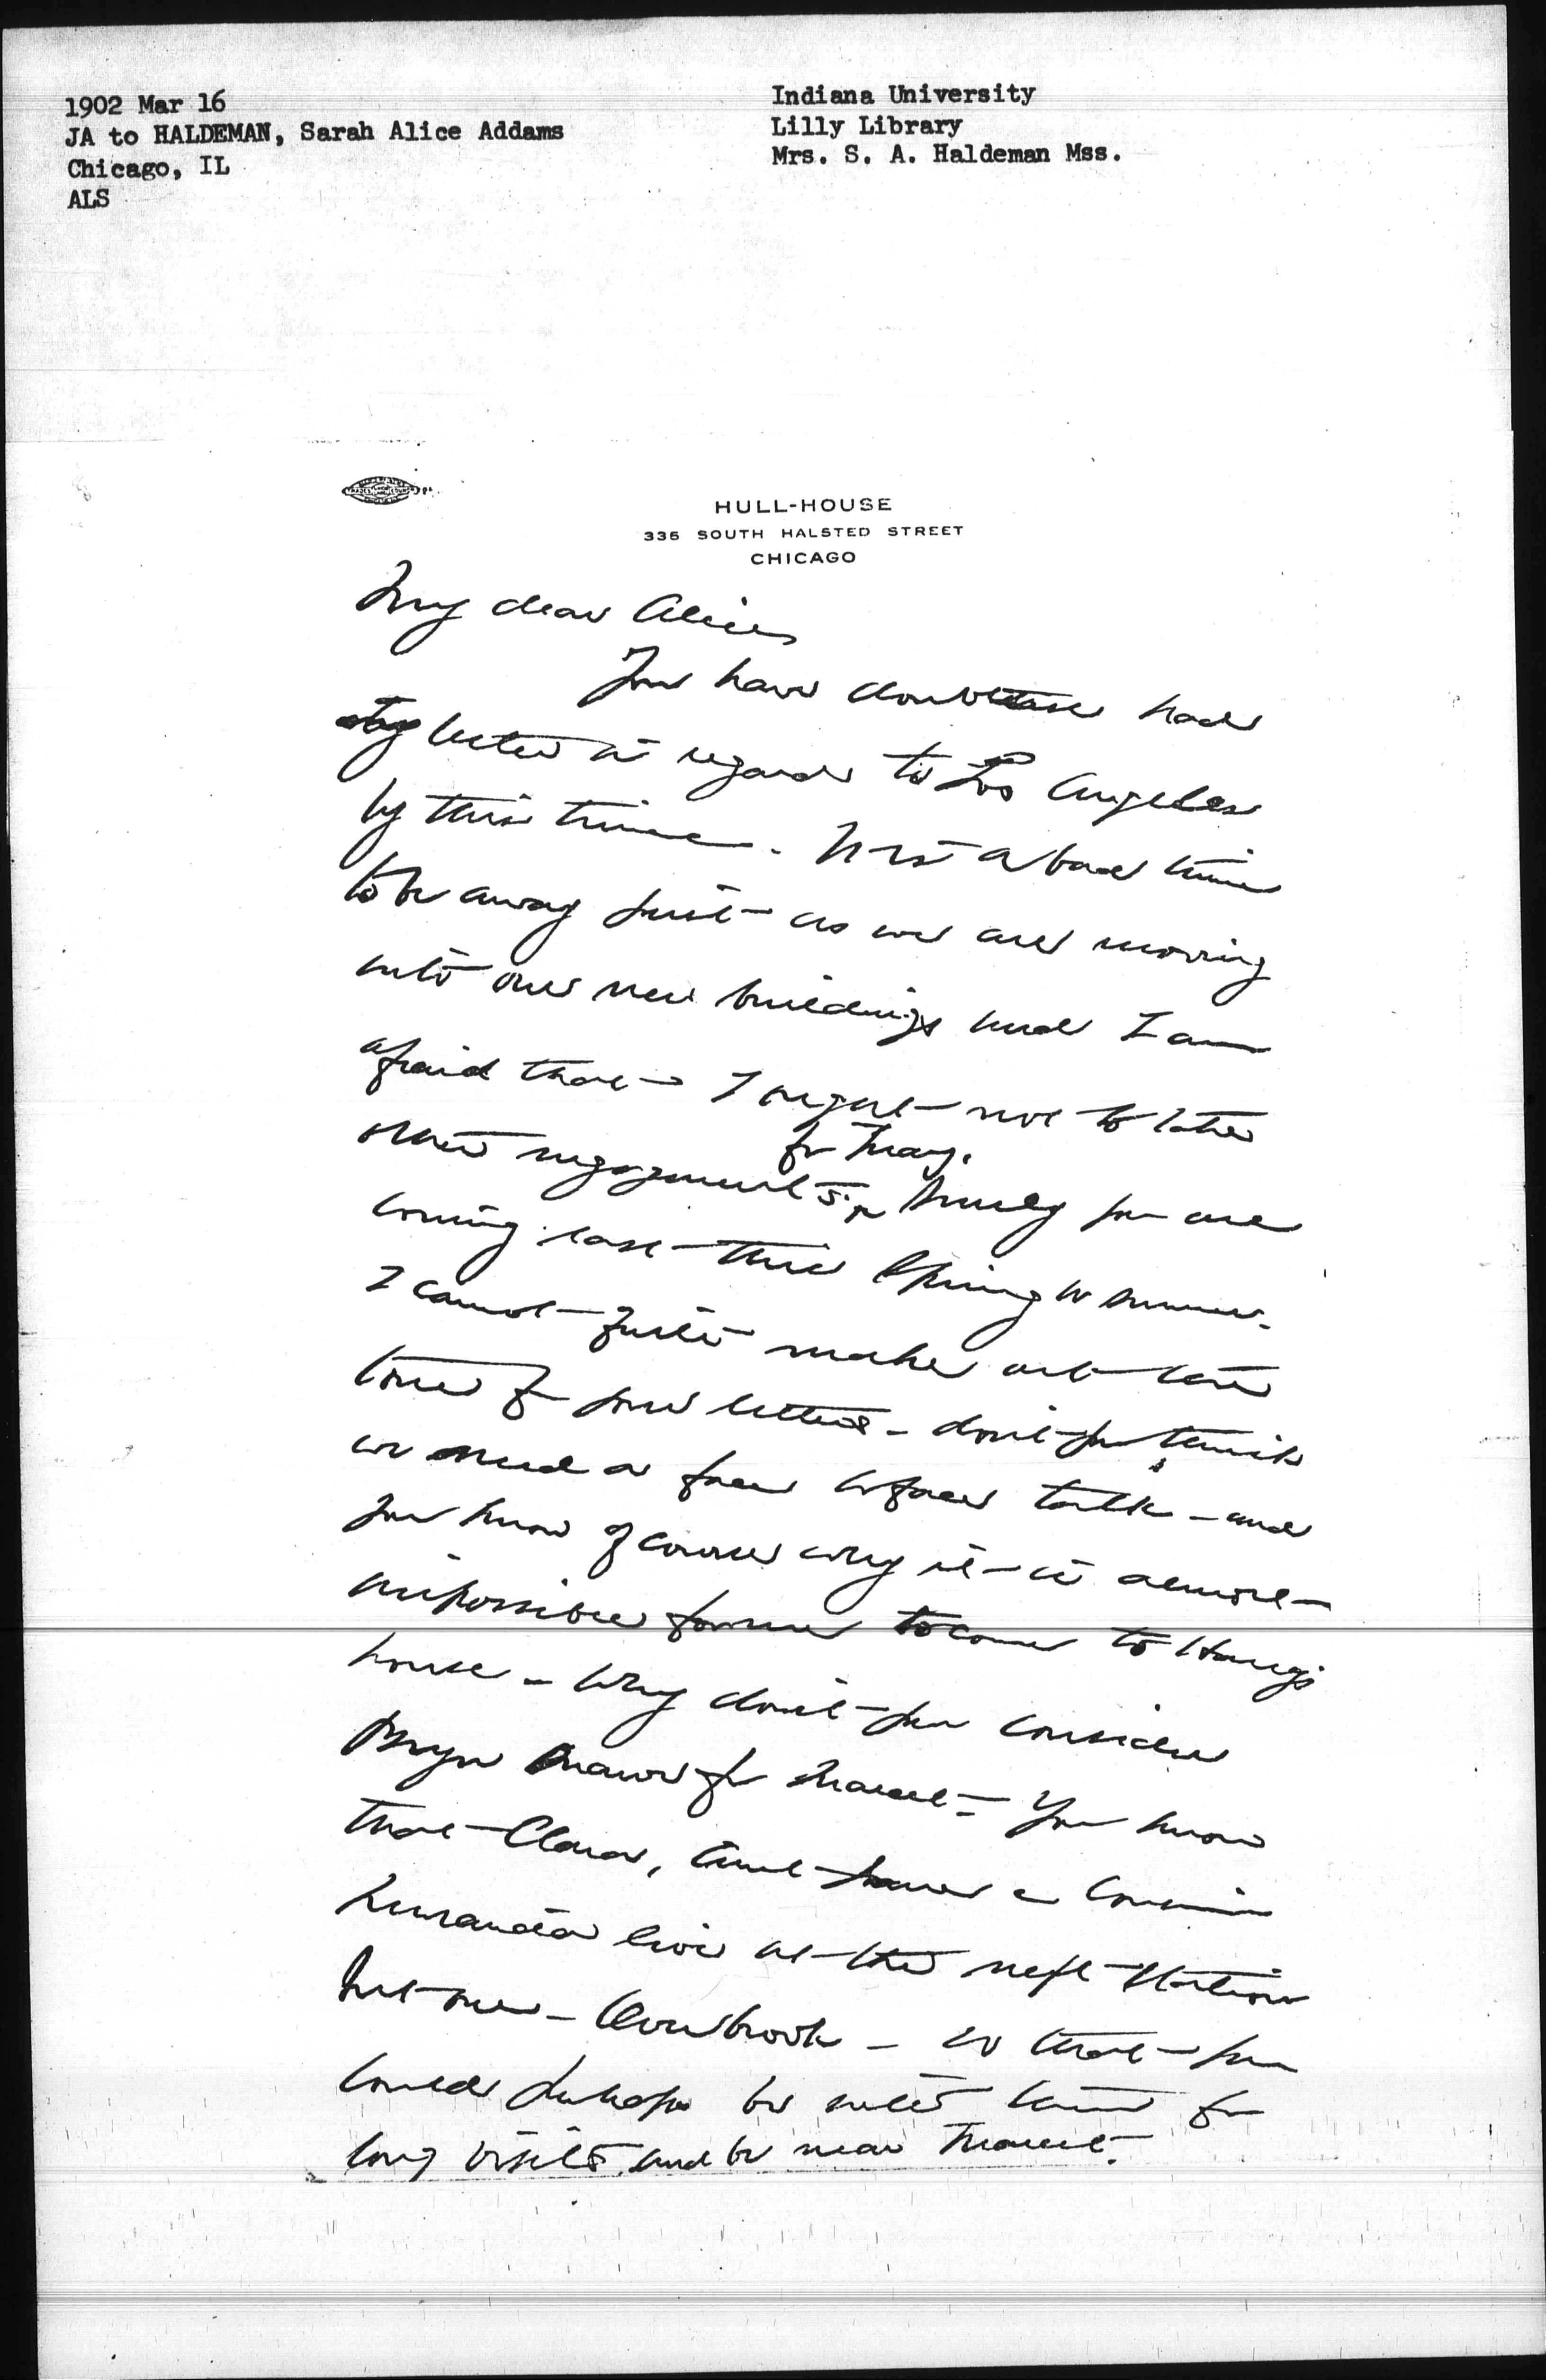 1902 Mar 16
JA to HALDEMAN, Sarah Alice Addams
Chicago, IL
ALS
Indiana University
Lilly Library
Mrs. S. A. Haldeman Mss.
HULL-HOUSE
335 SOUTH HALSTED STREET
CHICAGO
My dear Alice
You have doubtless had
my letter in regard to Los Angeles
by this time. It is a bad time
to be away just as we are moving
into our new buildings and I am
afraid that I ought not to take
other engagements for May. Surely you are
coming east this Spring or summer.
I cannot quite make out the
tone of your letter - don't you think
we need a face to face talk - and
you know of course why it is almost
impossible for me to come to Harry's
house - Why don't you consider
Bryn Mawr for Marcet - You know
that Clara, Aunt & Cousin
live at the next station
but one - Overbrook - so that you
could perhaps be with them for
long visits and be near Marcet.